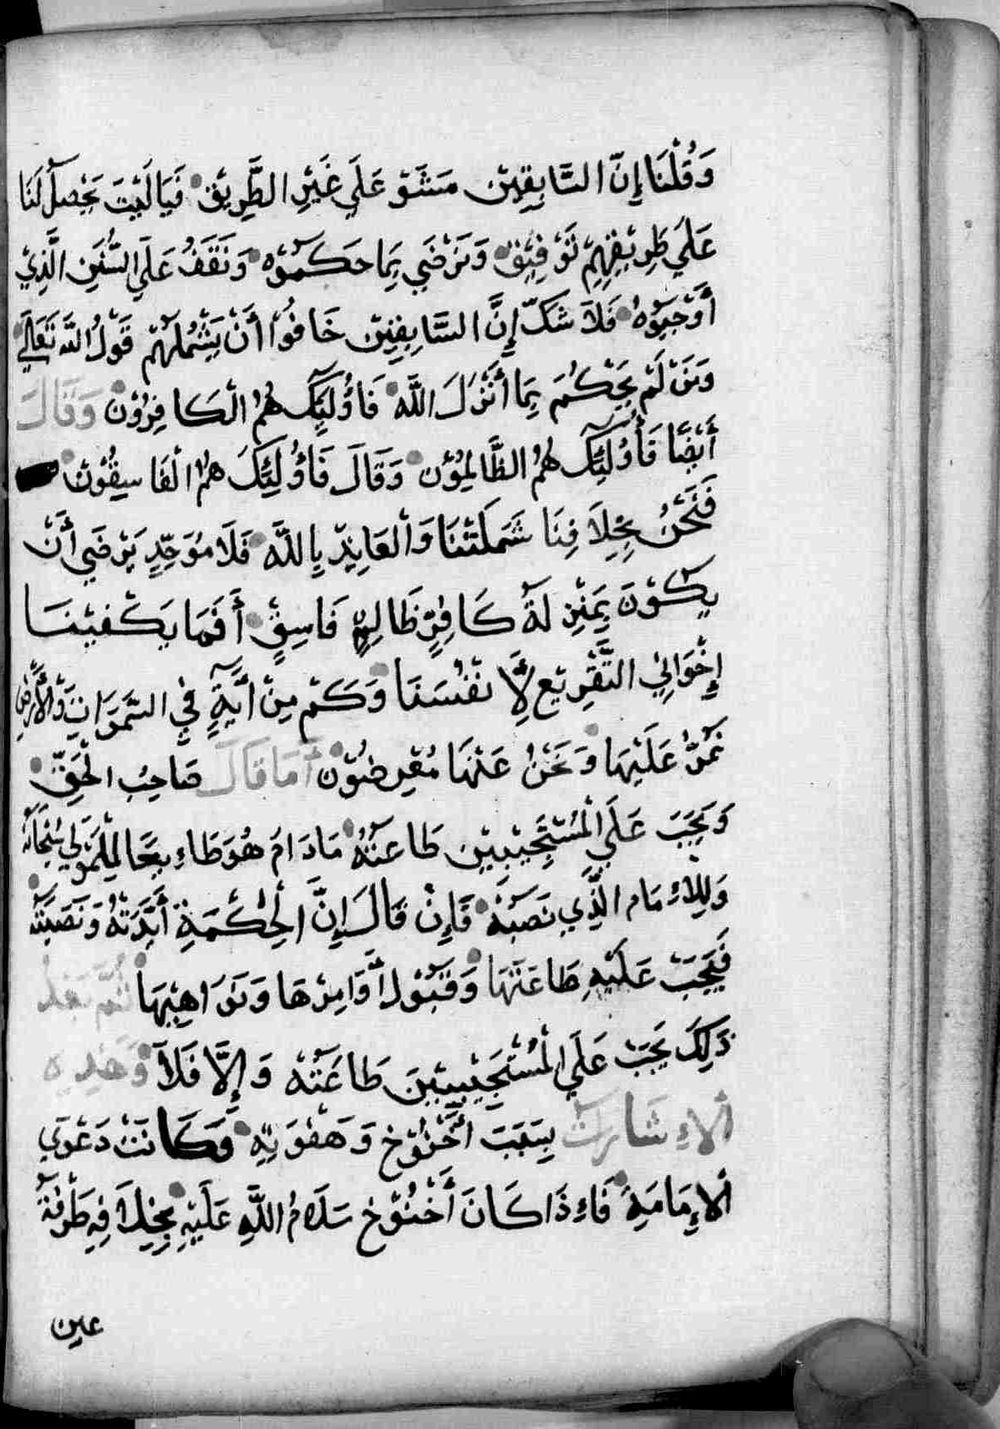 وَقُلْنَا إِنَّ السَّابِقِيْن مَشَوْ عَلَي غَيْرِ الطَّرِيْق فَيَا لَيْتَ يَحْصَلُ لَنَا
عَلَي طَرِيْقِهِمْ تَوْفِيْق وَنَرْضَي بِمَا حَكَمُوْه وَنَقَفُ عَلَي السُّنَنِ الَّذِيْ
أَوْجَبُوْهُ فَلَا شَكّ إِنَّ السَّابِقِيْن خَافُوْا أَنْ يَشْمُلَهُمْ قَوْلُ اللّٰه تَعَالَي
وَمَنْ لَمْ يَحْكُمَ بِمَا أَنْزَلَ اللَّه فَاؤُلَئِكَ هُمُ الْكَافِرُوْن وَقَالَ
أَيْضًا فَأُوْلَئِكَ هُمُ الظَّالِمُوْن وَقَالَ فَاؤُلَئِكَ هُمُ الْفَاسِقُوْن
فَنَحْنُ بِخِلَافِنَا شَمَلَتْنَا وَالْعَايِذ بِاللَّه فَلَا مُوَحِّدٍ يَرْضَي أَنْ
يَكُوْنَ بِمَنْزِلَة كَافِرٍ ظَالِمٍ فَاسِقٍ أَفَمَا يَكْفِيْنَا
إِخْوَانِي التَّقْرِيْع لِأَنْفُسَنَا وَكَمْ مِنْ أَيَةٍ فِي السَّمَوَاتِ وَالْأَرْضِ
نَمُرُّ عَلَيْهَا وَنَحْنُ عَنْهَا مُعْرِضُوْن أَمَا قَالَ صَاحِبُ الْحَقّ
وَيَجَبَ عَلَي الْمُسْتَجِيْبِيْن طَاعَتُهُ مَادَامُ هُوَ طَاءِيعًا لِلْمَوْلَي سُبْحَانَهُ
وَلِلاءِمَامِ الَّذِي نَصَبَهُ فَإِنْ قَالَ إِنَّ الْحِكْمَةِ أَيَّدَتْهُ وَنَصَبَتْه
فَيَجَبْ عَلَيْهِ طَاعَتَهَا وَقَبُوْل أَوَامِرْهَا وَنَوَاهِيْهَا ثُمَّ بَعْدَ
ذَلِكَ يَجَبْ عَلَي الْمُسْتَجِيْبِيْن طَاعَتُهُ وَإِلَّا فَلَا وَهَذِهِ
الاءِشَارَات بِسَبَبَ أَخْنُوْخ وَهَفْوَتِهِ وَكَانَتْ دَعْوَي
الاءِمَامَةِ فَاءِذَا كَانَ أَخْنُوْخ سَلَامُ اللَّهِ عَلَيْهِ بِخِلَافِهِ طَرْفَةَ
عين